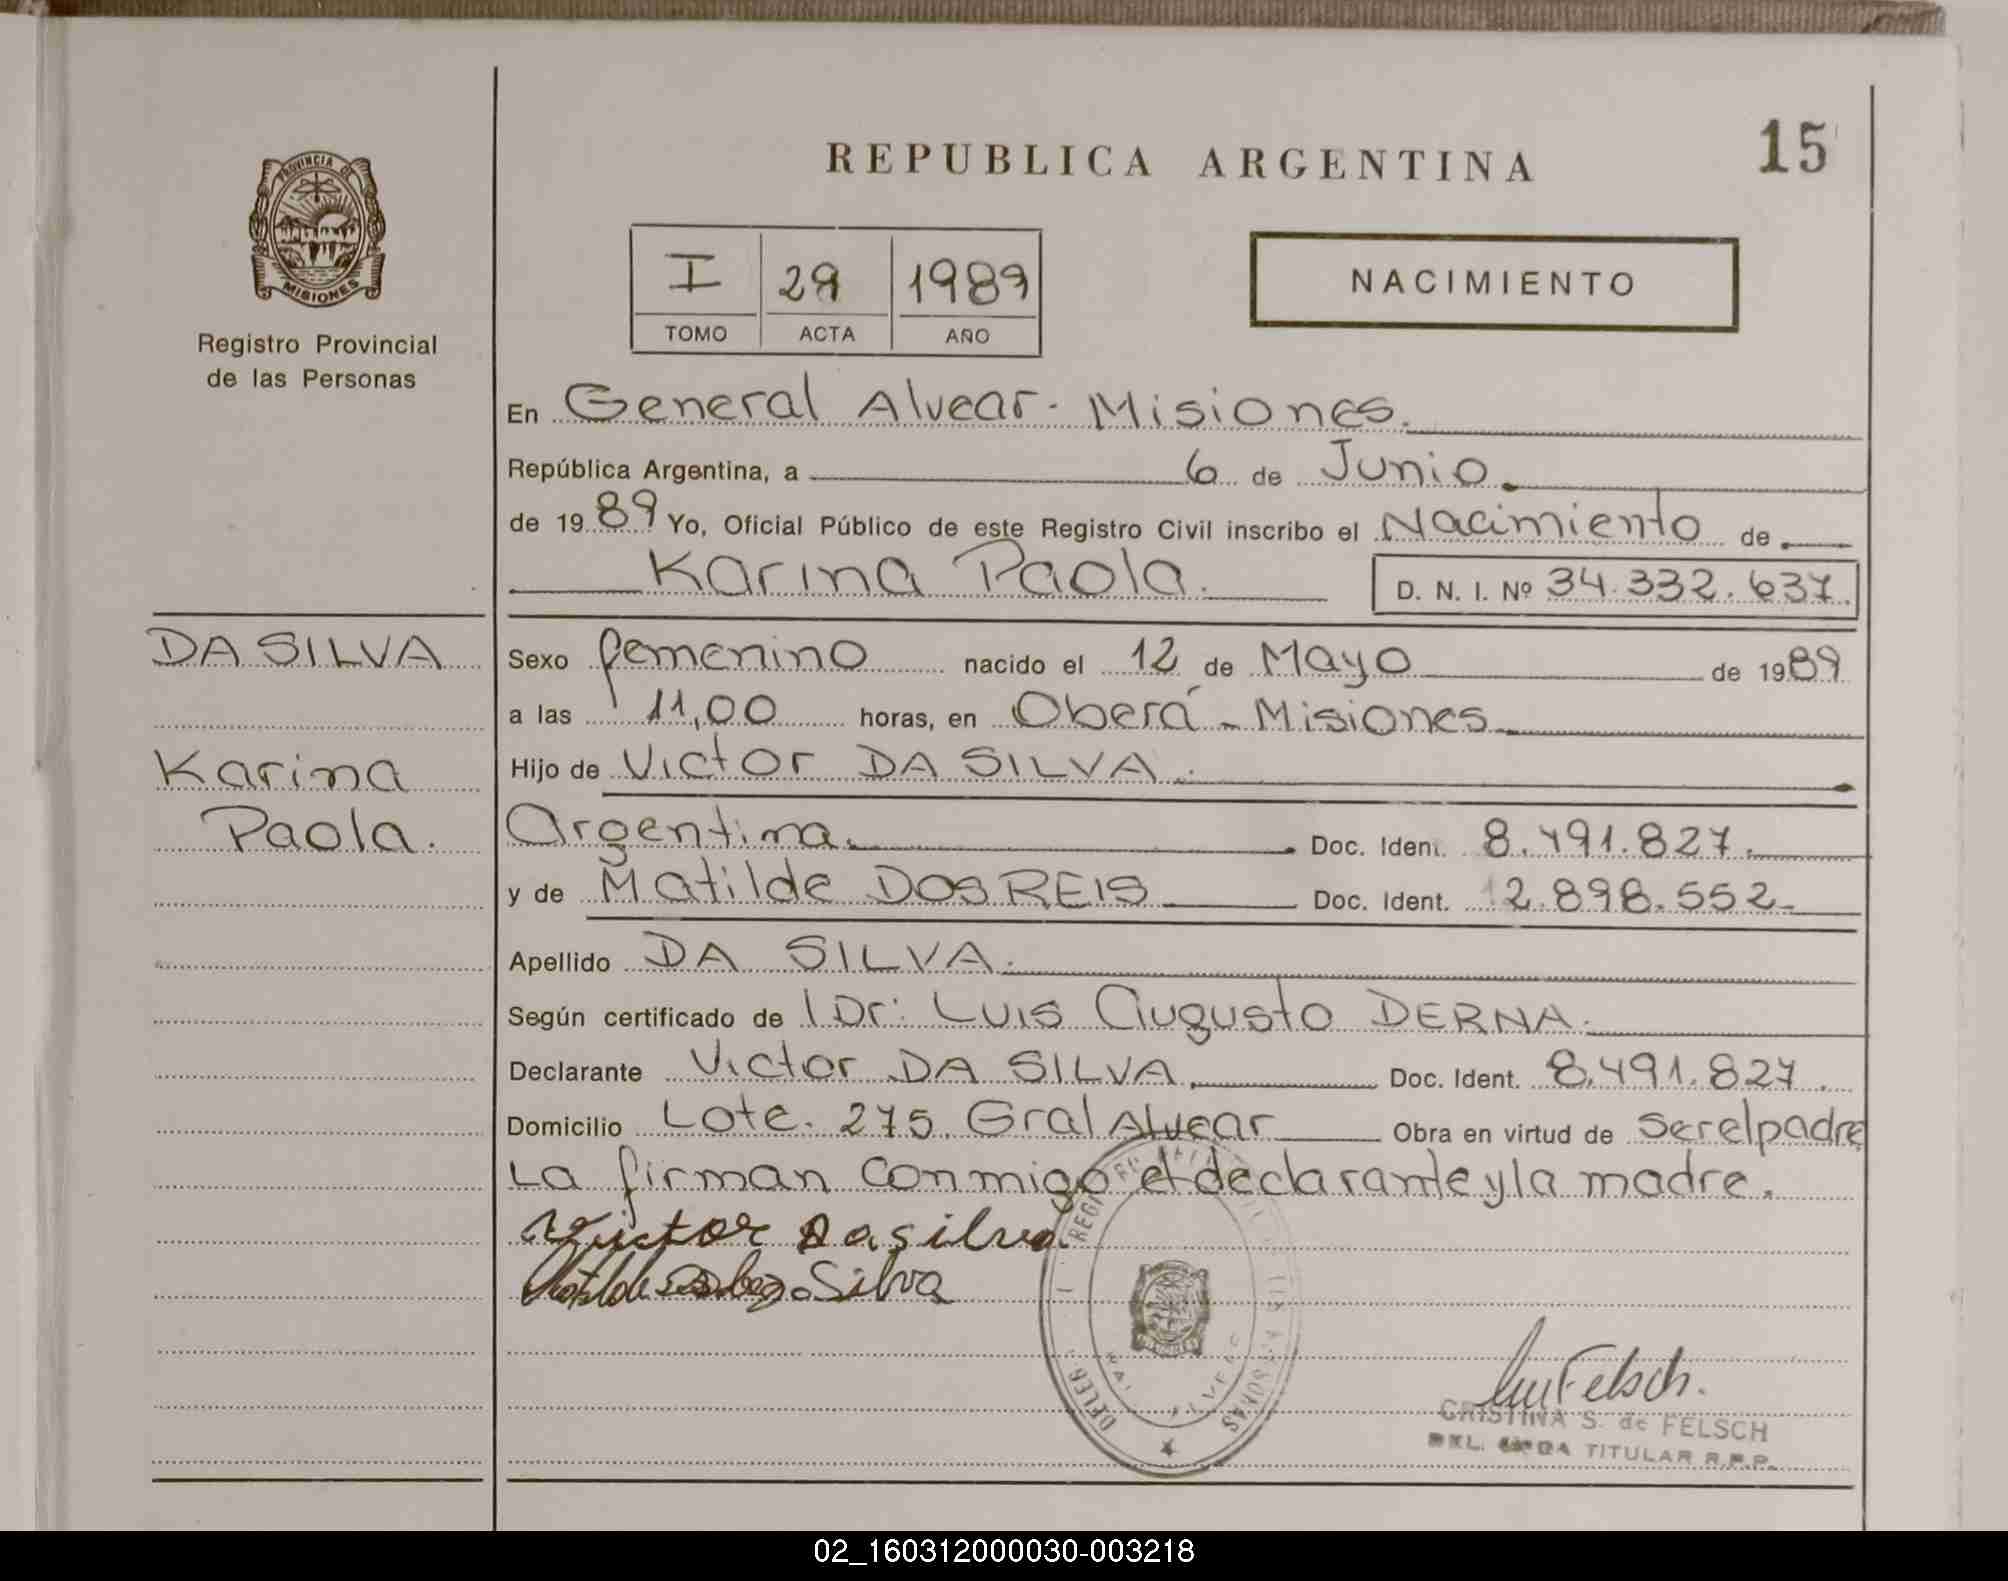 REPUBLICA ARGENTINA
15
PROVINCIA DE
MISIONES
Registro Provincial
de las Personas
I 29 1989
TOMO ACTA AÑO
NACIMIENTO
En General Alvear - Misiones.
República Argentina, a 6 de Junio.
de 1989 Yo, Oficial Público de este Registro Civil inscribo el Nacimiento de
Karina Paola. D. N. I. Nº 34.332.637.
DA SILVA
Karina
Paola.
Sexo femenino nacido el 12 de Mayo de 1989
a las 11,00 horas, en Oberá - Misiones
Hijo de Victor DA SILVA.
Argentina. Doc. Ident. 8.491.827.
y de Matilde DOS REIS Doc. Ident. 12.898.552
Apellido DA SILVA.
Según certificado de l Dr: Luis Augusto DERNA.
Declarante Victor DA SILVA. Doc. Ident. 8.491.827.
Domicilio Lote. 275. Gral Alvear Obra en virtud de ser el padre
La firman conmigo el declarante y la madre.
Victor Dasilva
Silva
Felsch.
CRISTINA S. de FELSCH
TITULAR R.P.P.
02_160312000030-003218